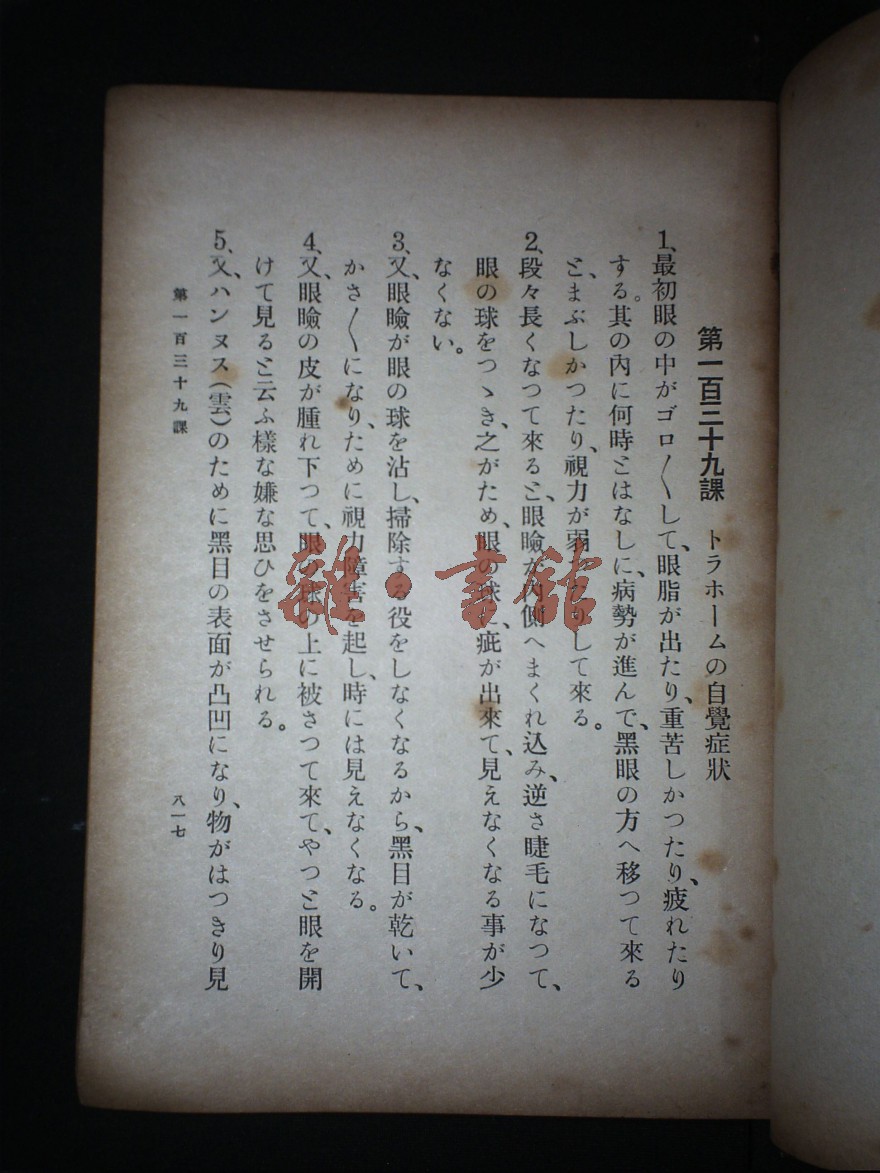 第一百三十九課　トラホームの自覺症狀
1、最初眼の中がゴロ〱して、眼脂が出たり、重苦しかつたり、疲れたり
する。其の內に何時とはなしに、病勢が進んで、黑眼の方へ移つて來る
と、まぶしかつたり、視力が弱 たりして來る。
2、段々長くなつて來ると、眼瞼が內側へまくれ込み、逆さ睫毛になつて、
眼の球をつゝき、之がため、眼の球に疵が出來て、見えなくなる事が少
なくない。
3、又、眼瞼が眼の球を沾し、掃除する役をしなくなるから、黑目が乾いて、
かさ〱になり、ために視力障害を起し、時には見えなくなる。
4、又、眼瞼の皮が腫れ下つて、眼の球の上に被さつて來て、やつと眼を開
けて見ると云ふ樣な嫌な思ひをさせられる。
5、又、ハンヌス(雲)のために黑目の表面が凸凹になり、物がはつきり見
第一百三十九課
八一七
雜·書館